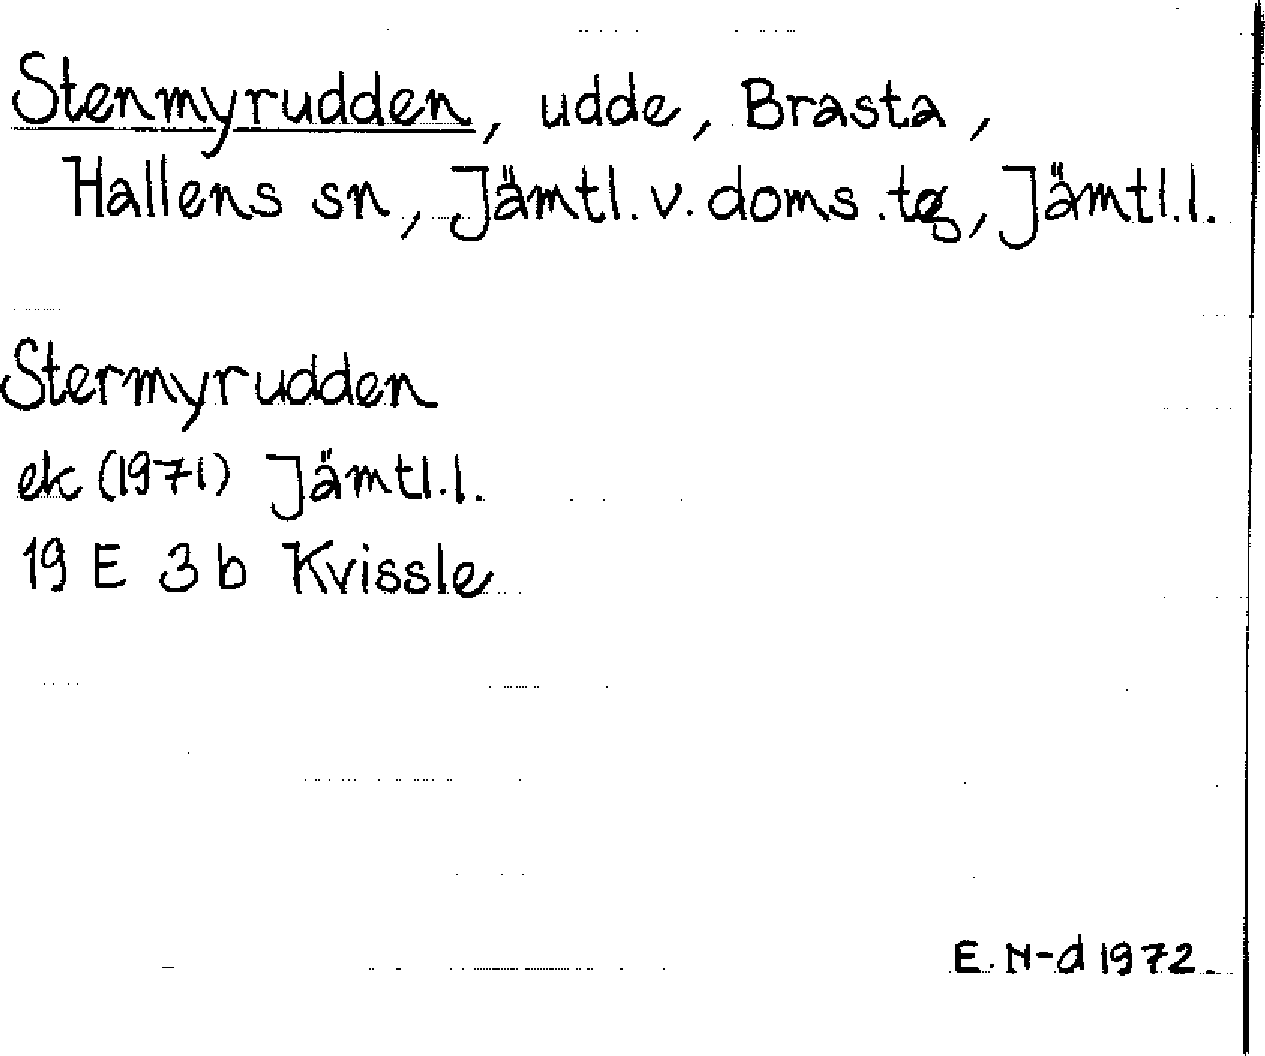 Stenmyrudden, udde, Brasta,
Hallens sn, Jämtl. v. doms. tg, Jämtl. l.
Stermyrudden
ek (1971) Jämtl. l.
19 E 3 b Kvissle
E. N-d 1972.